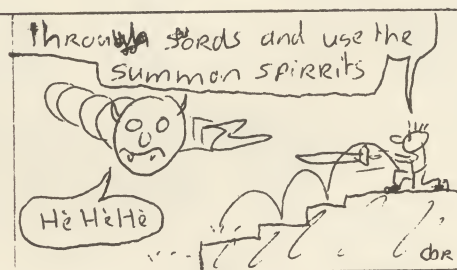 through sords and use the
summon spirrits
Hè HèHè